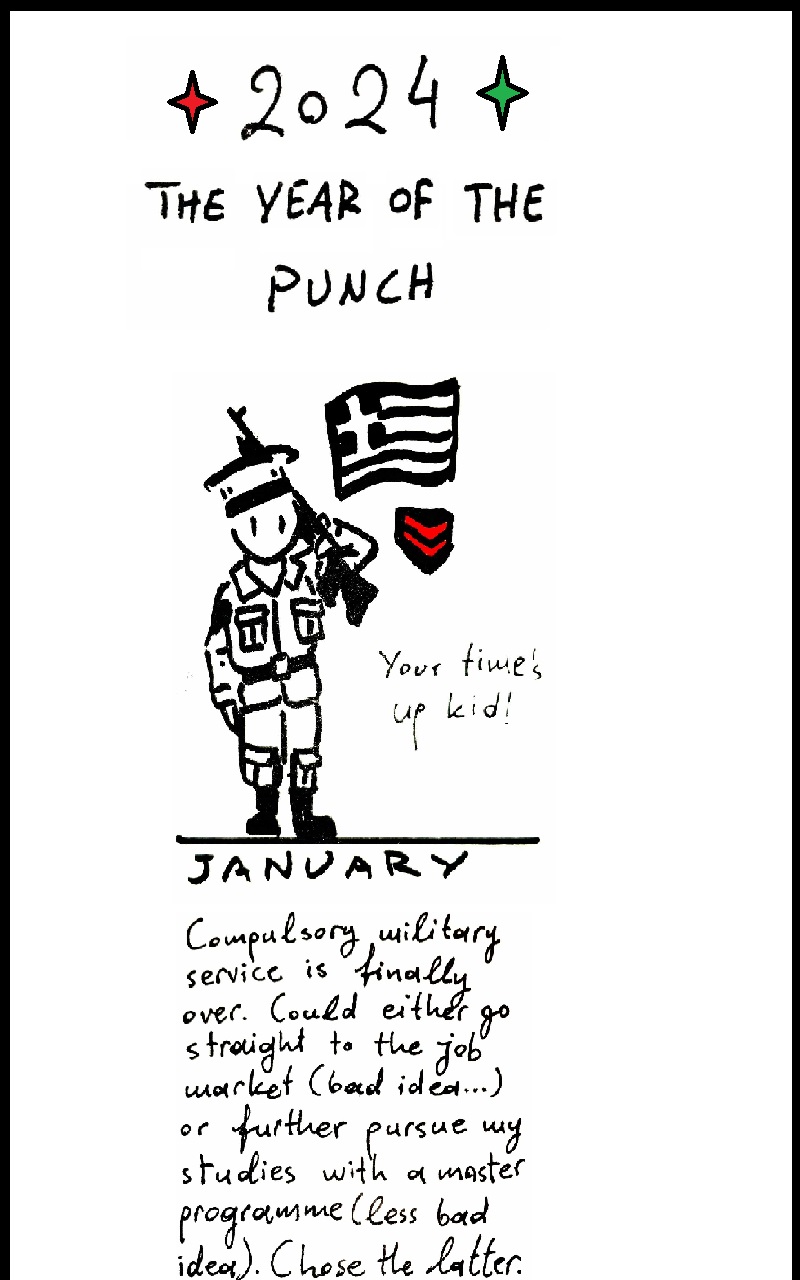 2024
THE YEAR OF THE
PUNCH
Your time's
up kid!
JANUARY
Compulsory military
service is finally
over. Could either go
straight to the job
market (bad idea...)
or further pursue my
studies with a master
programme (less bad
idea). Chose the latter.